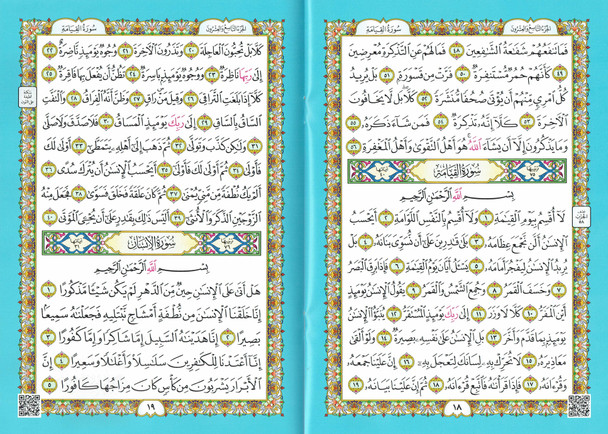 الجزء التاسع والعشرون
سورة القيامة
فَمَا تَنفَعُهُمْ شَفَٰعَةُ ٱلشَّٰفِعِينَ ٤٨ فَمَا لَهُمْ عَنِ ٱلتَّذْكِرَةِ مُعْرِضِينَ
٤٩ كَأَنَّهُمْ حُمُرٌ مُّسْتَنفِرَةٌ ٥٠ فَرَّتْ مِن قَسْوَرَةٍ ٥١ بَلْ يُرِيدُ
كُلُّ ٱمْرِئٍ مِّنْهُمْ أَن يُؤْتَىٰ صُحُفًا مُّنَشَّرَةً ٥٢ كَلَّا بَل لَّا يَخَافُونَ
ٱلْءَاخِرَةَ ٥٣ كَلَّا إِنَّهُۥ تَذْكِرَةٌ ٥٤ فَمَن شَآءَ ذَكَرَهُۥ ٥٥
وَمَا يَذْكُرُونَ إِلَّا أَن يَشَآءَ ٱللَّهُ هُوَ أَهْلُ ٱلتَّقْوَىٰ وَأَهْلُ ٱلْمَغْفِرَةِ ٥٦
سُورَةُ القِيَامَةِ
بِسْمِ ٱللَّهِ ٱلرَّحْمَٰنِ ٱلرَّحِيمِ
لَآ أُقْسِمُ بِيَوْمِ ٱلْقِيَٰمَةِ ١ وَلَآ أُقْسِمُ بِٱلنَّفْسِ ٱللَّوَّامَةِ ٢ أَيَحْسَبُ
ٱلْإِنسَٰنُ أَلَّن نَّجْمَعَ عِظَامَهُۥ ٣ بَلَىٰ قَٰدِرِينَ عَلَىٰٓ أَن نُّسَوِّىَ بَنَانَهُۥ ٤ بَلْ
يُرِيدُ ٱلْإِنسَٰنُ لِيَفْجُرَ أَمَامَهُۥ ٥ يَسْـَٔلُ أَيَّانَ يَوْمُ ٱلْقِيَٰمَةِ ٦ فَإِذَا بَرِقَ ٱلْبَصَرُ
٧ وَخَسَفَ ٱلْقَمَرُ ٨ وَجُمِعَ ٱلشَّمْسُ وَٱلْقَمَرُ ٩ يَقُولُ ٱلْإِنسَٰنُ يَوْمَئِذٍ
أَيْنَ ٱلْمَفَرُّ ١٠ كَلَّا لَا وَزَرَ ١١ إِلَىٰ رَبِّكَ يَوْمَئِذٍ ٱلْمُسْتَقَرُّ ١٢ يُنَبَّؤُا۟ ٱلْإِنسَٰنُ
يَوْمَئِذٍۭ بِمَا قَدَّمَ وَأَخَّرَ ١٣ بَلِ ٱلْإِنسَٰنُ عَلَىٰ نَفْسِهِۦ بَصِيرَةٌ ١٤ وَلَوْ أَلْقَىٰ
مَعَاذِيرَهُۥ ١٥ لَا تُحَرِّكْ بِهِۦ لِسَانَكَ لِتَعْجَلَ بِهِۦٓ ١٦ إِنَّ عَلَيْنَا جَمْعَهُۥ
وَقُرْءَانَهُۥ ١٧ فَإِذَا قَرَأْنَٰهُ فَٱتَّبِعْ قُرْءَانَهُۥ ١٨ ثُمَّ إِنَّ عَلَيْنَا بَيَانَهُۥ ١٩
١٨
الجزء التاسع والعشرون
سورة القيامة
كَلَّا بَلْ تُحِبُّونَ ٱلْعَاجِلَةَ ٢٠ وَتَذَرُونَ ٱلْءَاخِرَةَ ٢١ وُجُوهٌ يَوْمَئِذٍ نَّاضِرَةٌ ٢٢
إِلَىٰ رَبِّهَا نَاظِرَةٌ ٢٣ وَوُجُوهٌ يَوْمَئِذٍۭ بَاسِرَةٌ ٢٤ تَظُنُّ أَن يُفْعَلَ بِهَا فَاقِرَةٌ ٢٥
كَلَّآ إِذَا بَلَغَتِ ٱلتَّرَاقِىَ ٢٦ وَقِيلَ مَنْ رَاقٍ ٢٧ وَظَنَّ أَنَّهُ ٱلْفِرَاقُ ٢٨ وَٱلْتَفَّتِ
ٱلسَّاقُ بِٱلسَّاقِ ٢٩ إِلَىٰ رَبِّكَ يَوْمَئِذٍ ٱلْمَسَاقُ ٣٠ فَلَا صَدَّقَ وَلَا صَلَّىٰ
٣١ وَلَٰكِن كَذَّبَ وَتَوَلَّىٰ ٣٢ ثُمَّ ذَهَبَ إِلَىٰٓ أَهْلِهِۦ يَتَمَطَّىٰٓ ٣٣ أَوْلَىٰ لَكَ
فَأَوْلَىٰ ٣٤ ثُمَّ أَوْلَىٰ لَكَ فَأَوْلَىٰٓ ٣٥ أَيَحْسَبُ ٱلْإِنسَٰنُ أَن يُتْرَكَ سُدًى ٣٦
أَلَمْ يَكُ نُطْفَةً مِّن مَّنِىٍّ يُمْنَىٰ ٣٧ ثُمَّ كَانَ عَلَقَةً فَخَلَقَ فَسَوَّىٰ ٣٨ فَجَعَلَ مِنْهُ
ٱلزَّوْجَيْنِ ٱلذَّكَرَ وَٱلْأُنثَىٰٓ ٣٩ أَلَيْسَ ذَٰلِكَ بِقَٰدِرٍ عَلَىٰٓ أَن يُحْۦِىَ ٱلْمَوْتَىٰ ٤٠
سُورَةُ الإِنسَانِ
بِسْمِ ٱللَّهِ ٱلرَّحْمَٰنِ ٱلرَّحِيمِ
هَلْ أَتَىٰ عَلَى ٱلْإِنسَٰنِ حِينٌ مِّنَ ٱلدَّهْرِ لَمْ يَكُن شَيْـًٔا مَّذْكُورًا ١
إِنَّا خَلَقْنَا ٱلْإِنسَٰنَ مِن نُّطْفَةٍ أَمْشَاجٍ نَّبْتَلِيهِ فَجَعَلْنَٰهُ سَمِيعًۢا
بَصِيرًا ٢ إِنَّا هَدَيْنَٰهُ ٱلسَّبِيلَ إِمَّا شَاكِرًا وَإِمَّا كَفُورًا ٣
إِنَّآ أَعْتَدْنَا لِلْكَٰفِرِينَ سَلَٰسِلَا۟ وَأَغْلَٰلًا وَسَعِيرًا ٤ إِنَّ
ٱلْأَبْرَارَ يَشْرَبُونَ مِن كَأْسٍ كَانَ مِزَاجُهَا كَافُورًا ٥
١٩